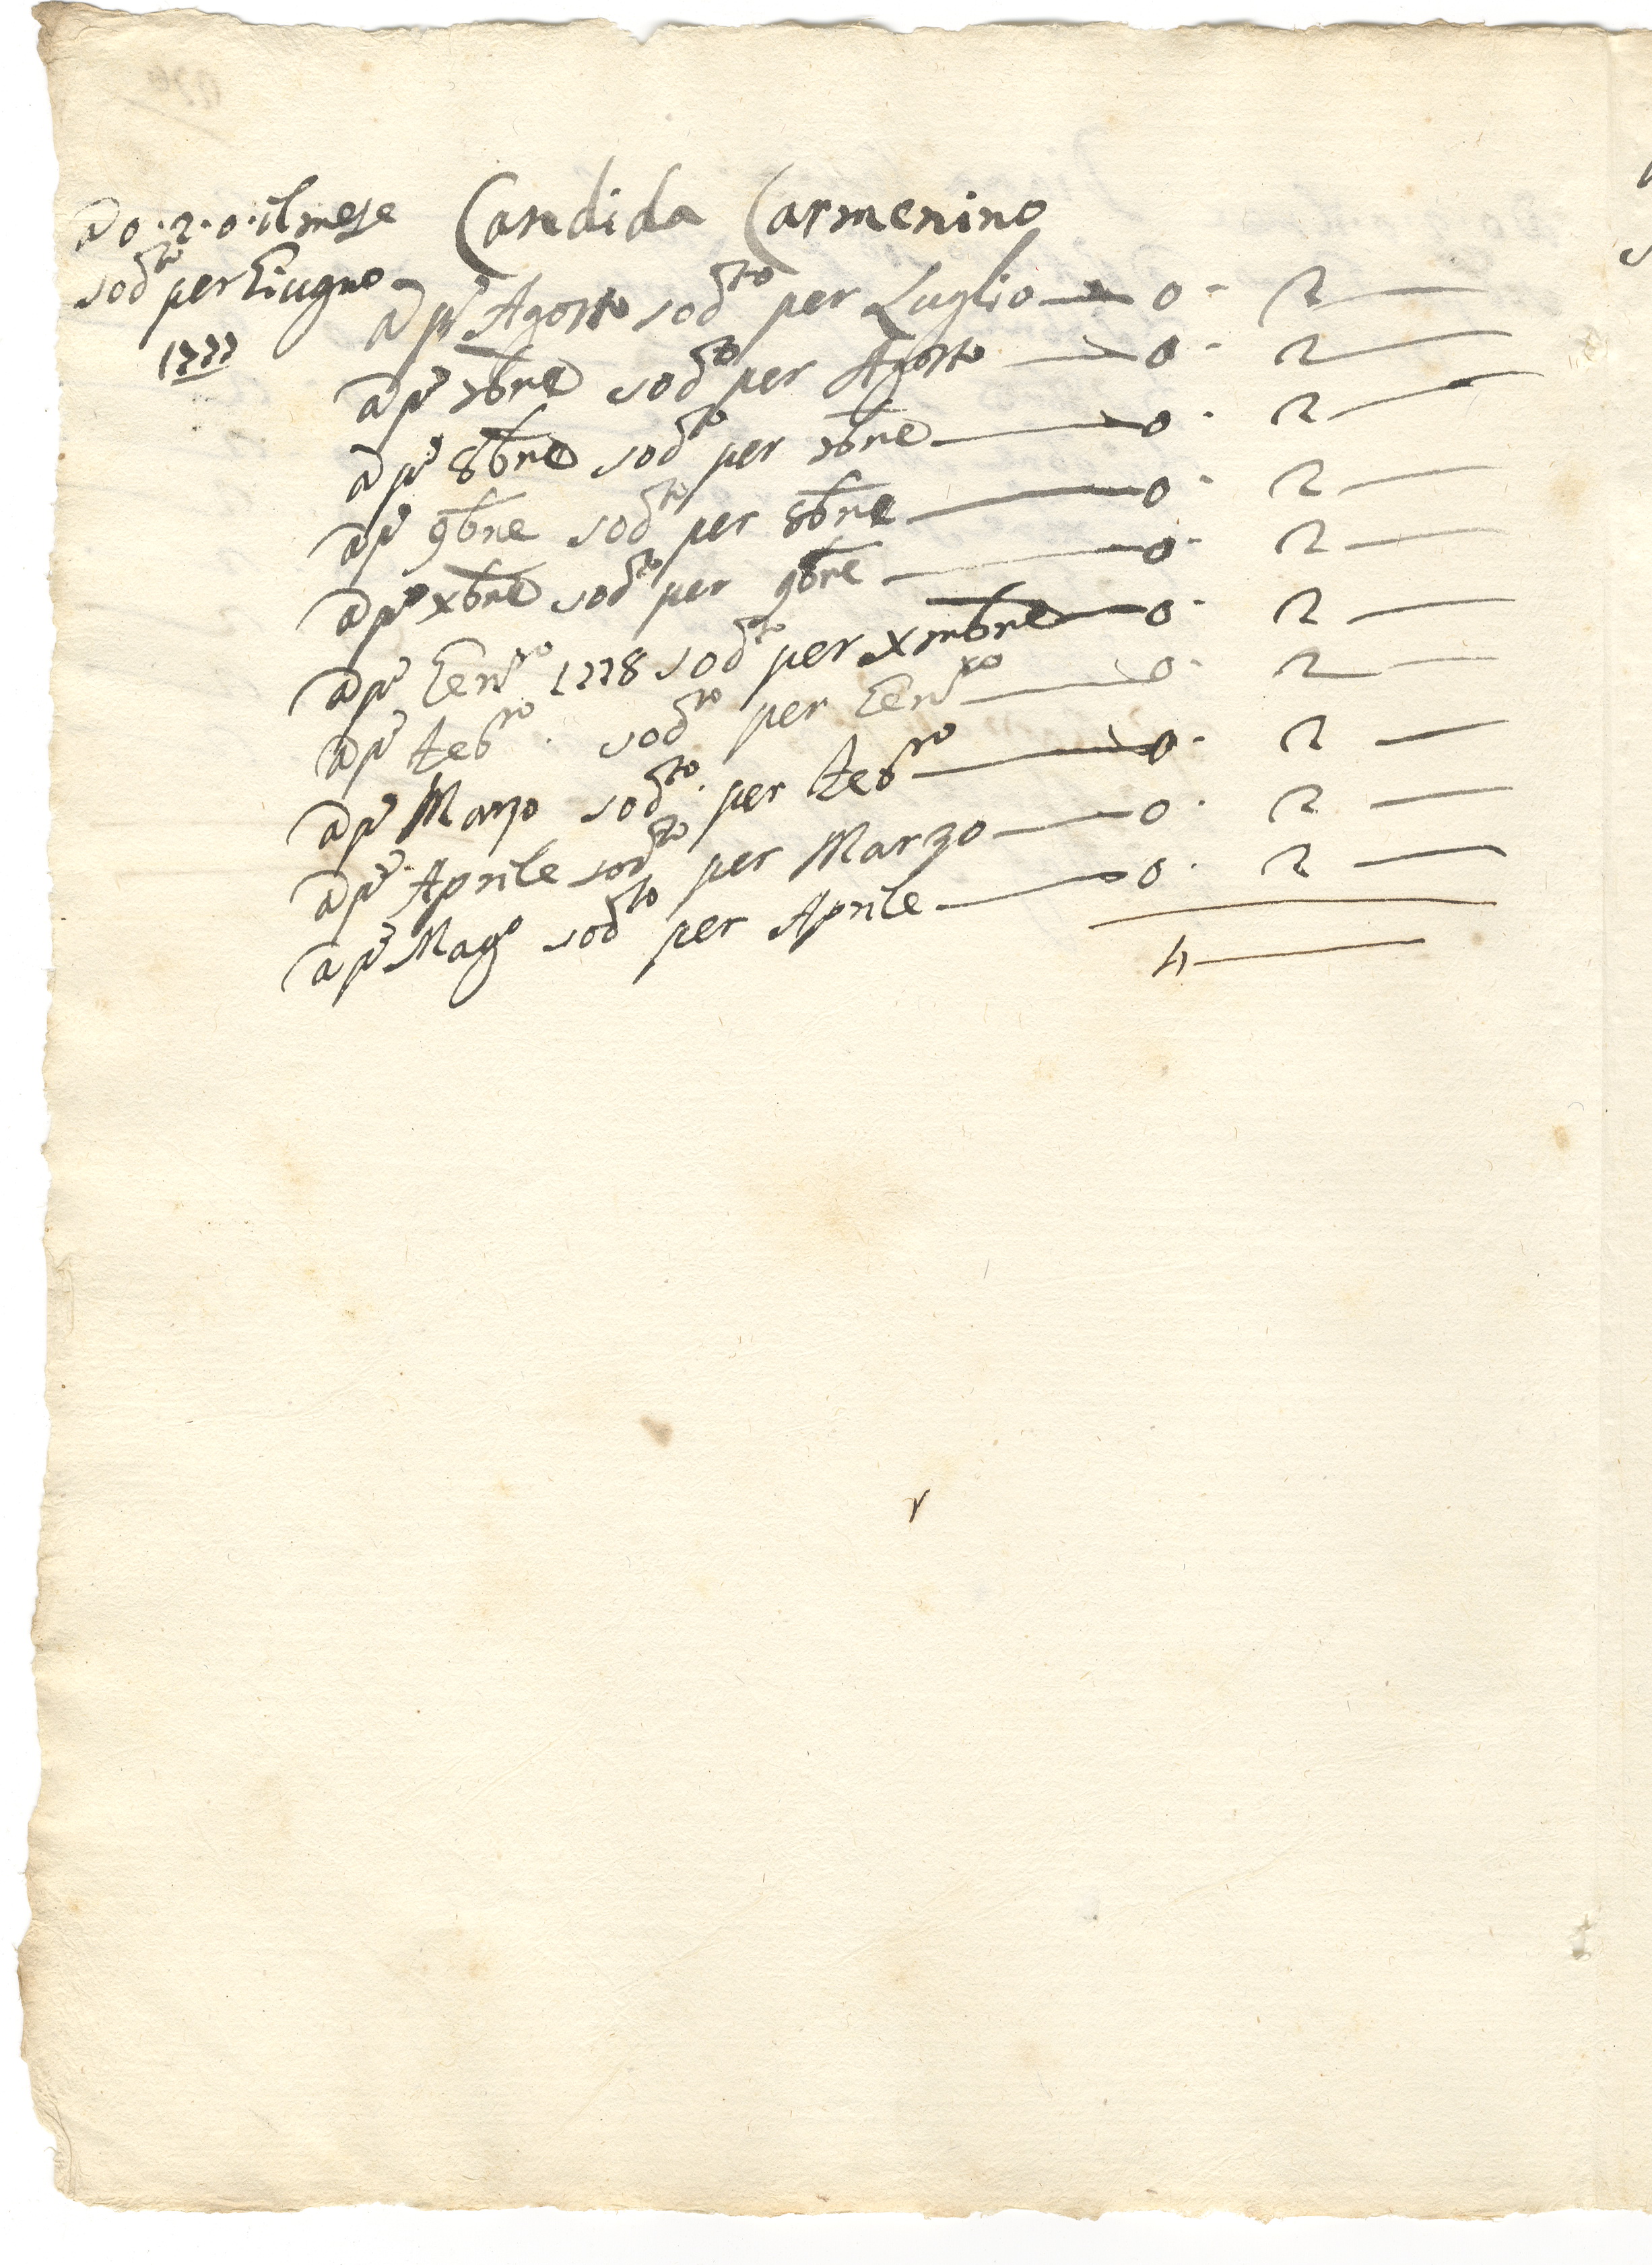 a 0.2.0. il mese
sodto per Giugno
1777
Candida Carmenino
a po Agosto sodto per Luglio — 0 - 2 —
a po 7bre sodto per Agosto — 0 - 2 —
a po 8bre sodto per 7bre — 0 - 2 —
a po 9bre sodto per 8bre — 0 - 2 —
a po xbre sodto per 9bre — 0 - 2 —
a po Genro 1778 sodto per xmbre — 0 - 2 —
a po Febro . sodto per Genro — 0 - 2 —
a po Marzo sodto per Febro — 0 - 2 —
a po Aprile sodto per Marzo — 0 - 2 —
a po Mago sodto per Aprile — 0 - 2 —